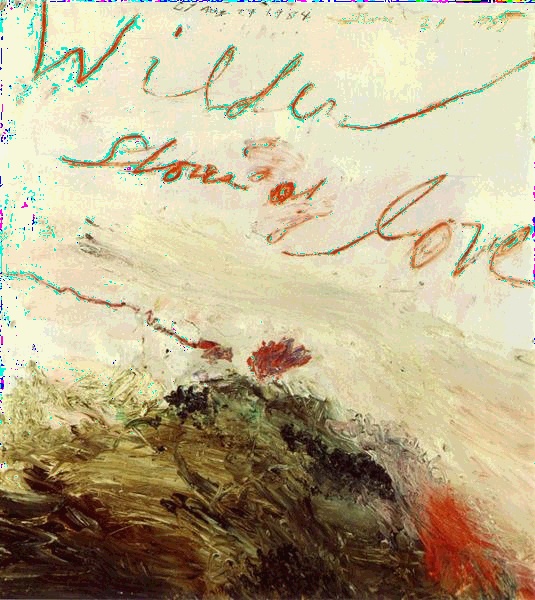 Wilder
Shores of
love